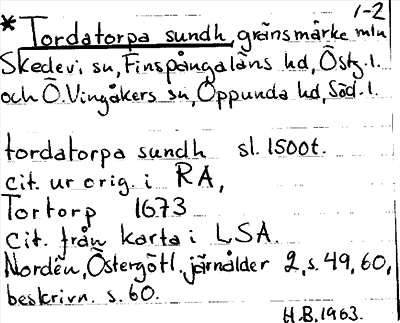 1-2
*Tordatorpa sundh, gränsmärke mln
Skedevi sn, Finspångaläns hd, Östg. l.
och Ö. Vingåkers sn, Oppunda hd, Söd. l.
tordatorpa sundh sl. 1500t.
cit. ur orig. i RA,
Tortorp 1673
cit. från karta i LSA.
Nordén, Östergötl. järnålder 2, s. 49, 60,
beskrivn. s. 60.
H.B. 1963.